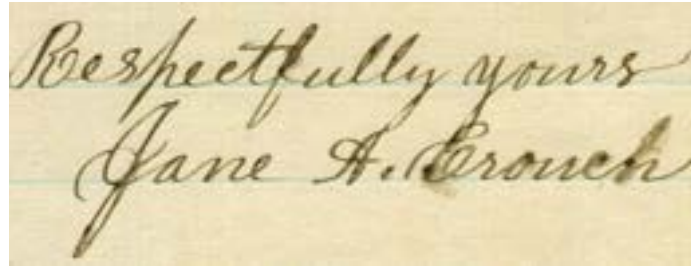 Respectfully yours
Jane A. Crouch